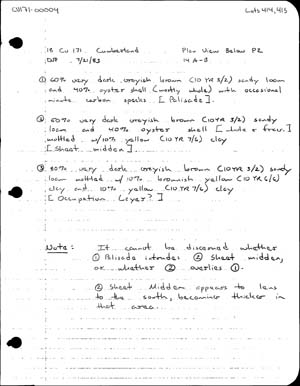 CU171-00004
Lots 414, 415
18 CV 171 Cumberland Plan View Below PZ
7/21/83 14 A-B
① 60% very dark greyish brown (10 YR 3/2) sandy loam
and 40% oyster shell (mostly whole) with occasional
minute carbon specks [Palisade].
② 60% very dark greyish brown (10YR 3/2) sandy
loam and 40% oyster shell [whole & frev.]
mottled w/ 10% yellow (10 YR 7/6) clay
[Sheet midden].
③ 80% very dark greyish brown (10YR 3/2) sandy
loam mottled w/ 10% brownish yellow (10 YR 6/6)
clay and 10% yellow (10 YR 7/6) clay
[Occupation Layer?]
Note: It cannot be discerned whether
① Palisade intrudes ② Sheet midden,
or whether ② overlies ①.
② Sheet Midden appears to lens
to the south, becoming thicker in
that area.